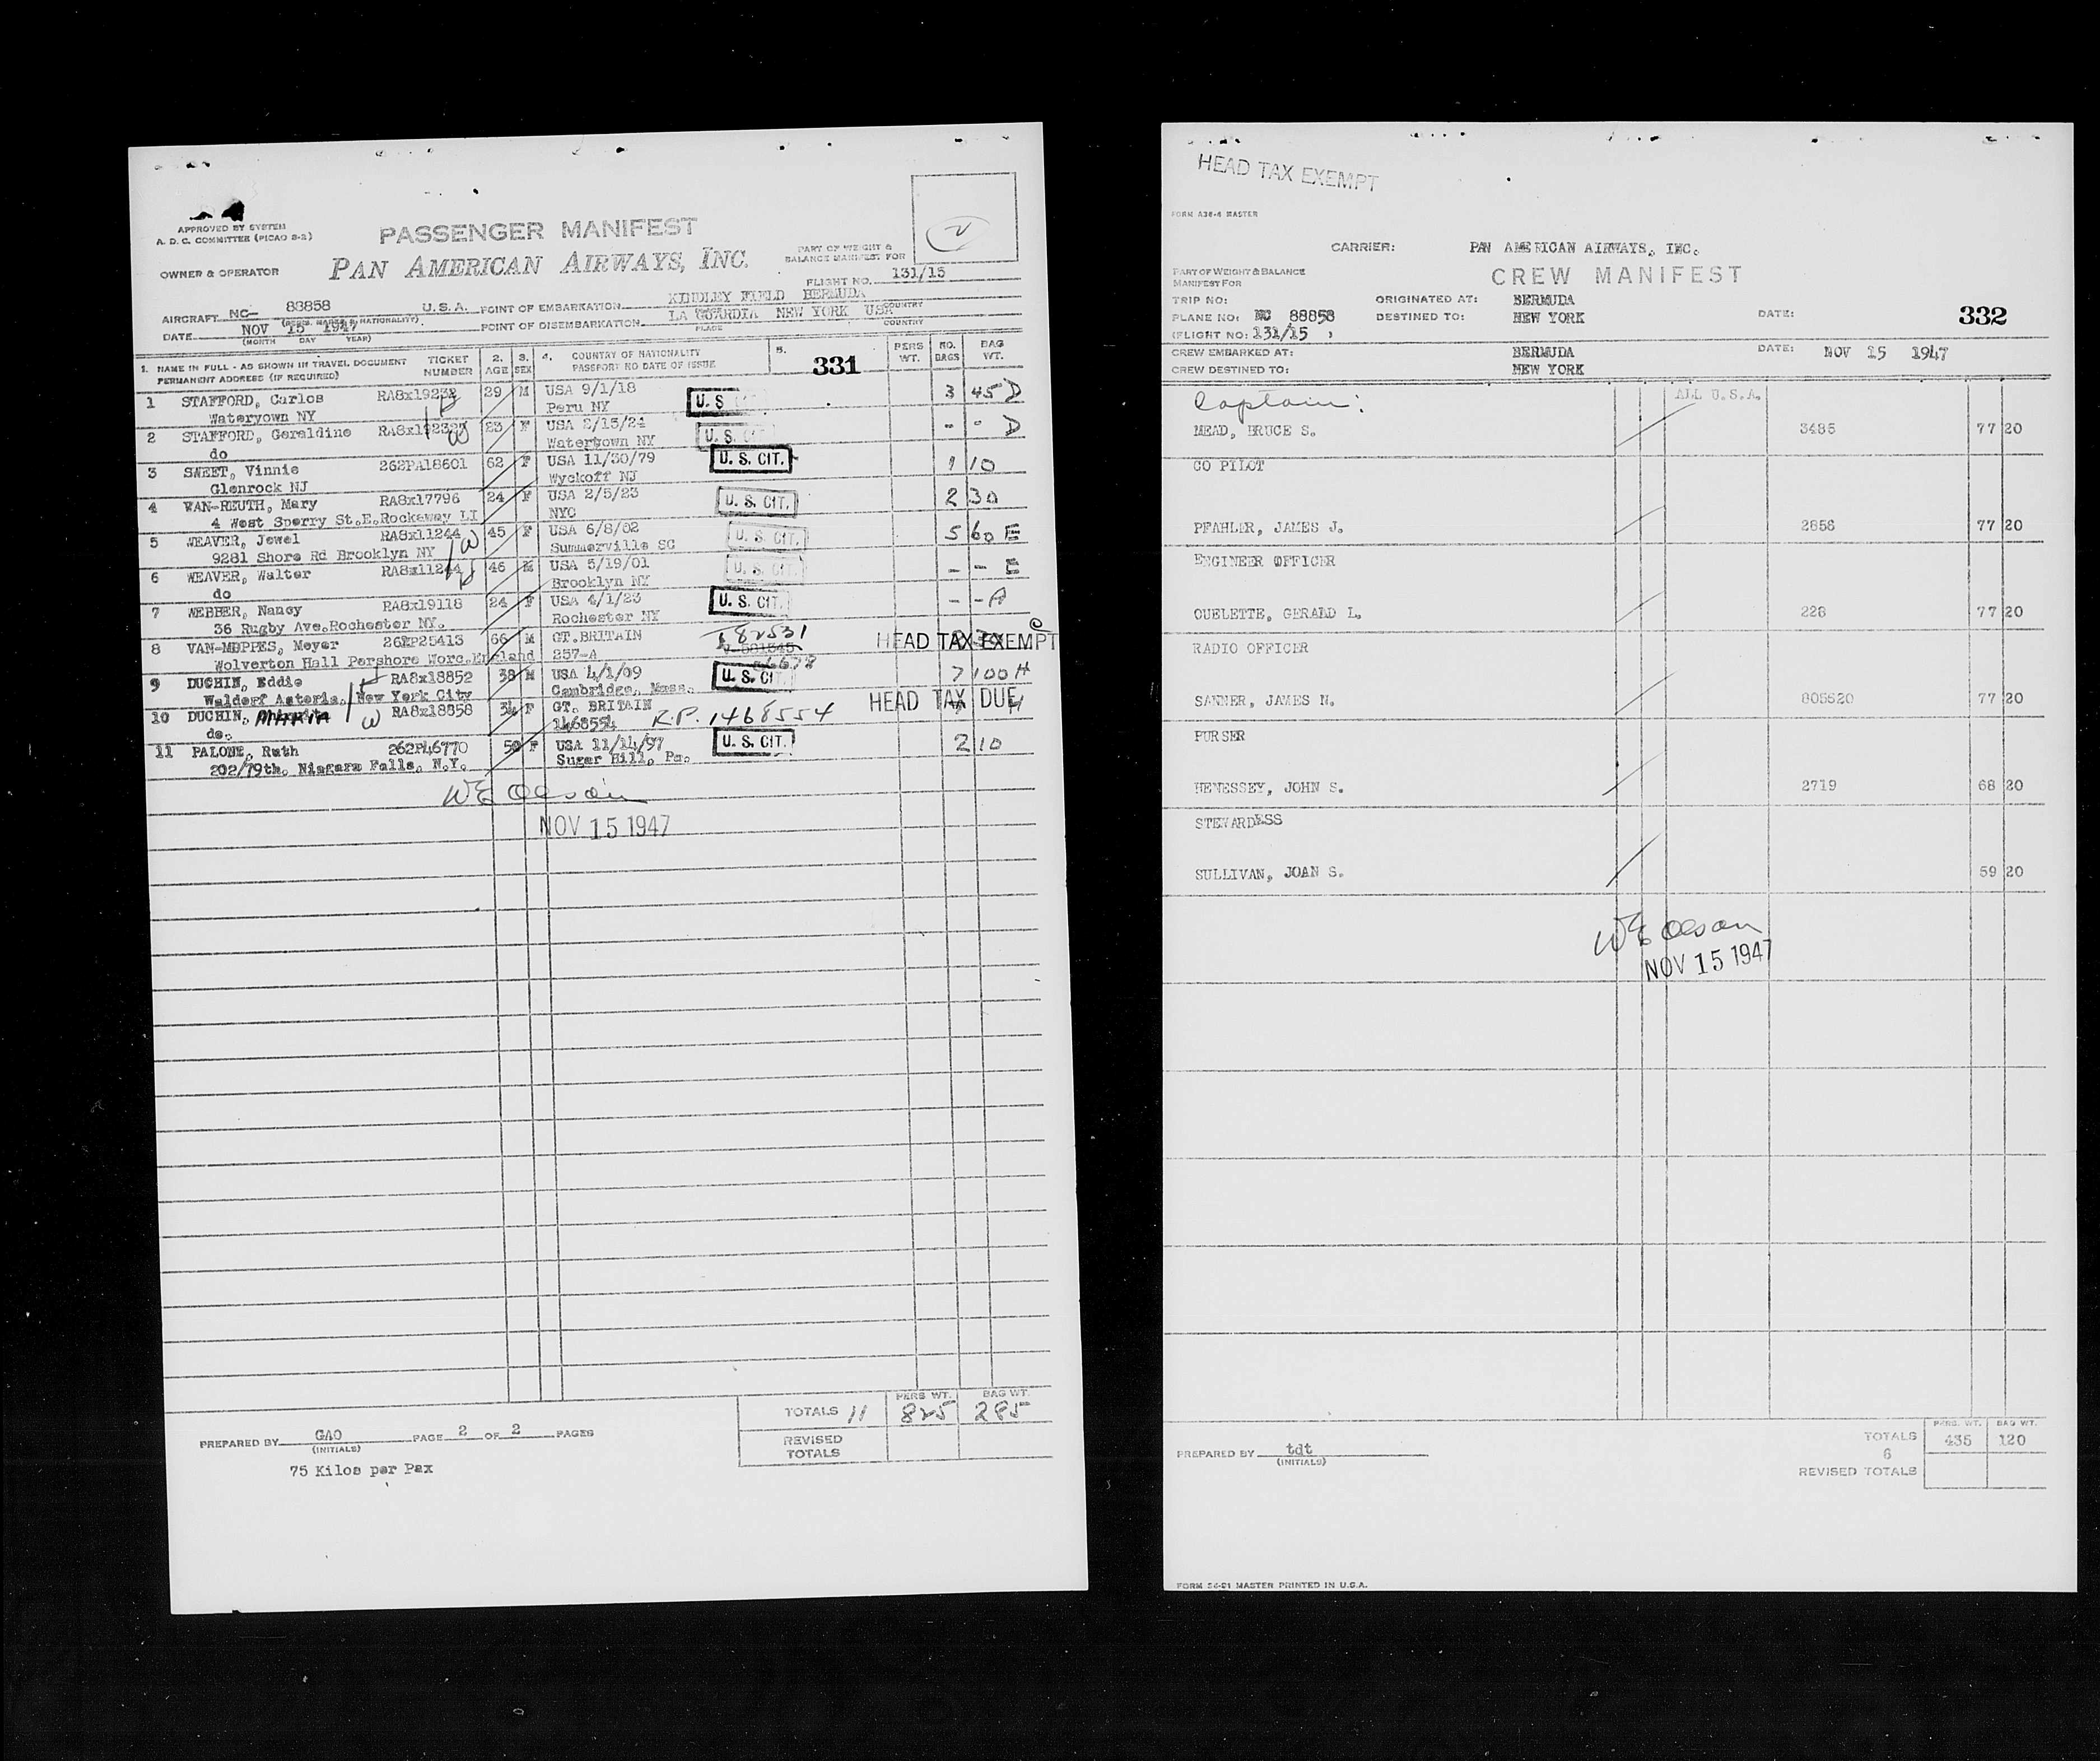 APPROVED BY SYSTEM
A. D. C. COMMITTEE (PICAO S-2)
PASSENGER MANIFEST
PAN AMERICAN AIRWAYS, INC.
OWNER & OPERATOR
PART OF WEIGHT &
BALANCE MANIFEST FOR
FLIGHT NO. 131/15
AIRCRAFT NC- 88858 U.S.A. POINT OF EMBARKATION KINDLEY FIELD BERMUDA
COUNTRY
DATE NOV 15 1947 POINT OF DISEMBARKATION LA GUARDIA NEW YORK USA
(MONTH DAY YEAR) PLACE COUNTRY
1. NAME IN FULL - AS SHOWN IN TRAVEL DOCUMENT
PERMANENT ADDRESS (IF REQUIRED)
TICKET NUMBER
2. AGE
3. SEX
4. COUNTRY OF NATIONALITY
PASSPORT NO DATE OF ISSUE
5. 331
PERS WT.
NO. BAGS
BAG WT.
1 STAFFORD, Carlos RA8x19232 29 M USA 9/1/18 U. S. 3 45 D
Watertown NY Peru NY
2 STAFFORD, Geraldine 23 F USA 2/15/24 U. S. - - D
do Watertown NY
3 SWEET, Vinnie 262PA18601 62 F USA 11/30/79 U. S. CIT. 1 10
Glenrock NJ Wyckoff NJ
4 VAN-REUTH, Mary RA8x17796 24 F USA 2/5/23 U. S. CIT. 2 30
4 West Sperry St.E.Rockaway LI NYC
5 WEAVER, Jewel RA8x11244 45 F USA 6/8/02 U. S. CIT. 5 60 E
9281 Shore Rd Brooklyn NY Summerville SC
6 WEAVER, Walter RA8x11244 46 M USA 5/19/01 U. S. CIT. - - E
do Brooklyn NY
7 WEBBER, Nancy RA8x19118 24 F USA 4/1/23 U. S. CIT. - - A
36 Rugby Ave.Rochester NY. Rochester NY
8 VAN-MOPPES, Meyer 262P25413 66 M GT.BRITAIN HEAD TAX EXEMPT
Wolverton Hall Pershore Worc.England 257-A
9 DUCHIN, Eddie RA8x18852 38 M USA 4/1/09 U. S. CIT. 7 100 H
Waldorf Astoria, New York City Cambridge, Mass.
10 DUCHIN, MARIA RA8x18858 34 F GT. BRITAIN HEAD TAX DUE
do. 1468554 R.P. 1468554
11 PALONE, Ruth 262P46770 50 F USA 11/14/97 U. S. CIT. 2 10
202/79th. Niagara Falls, N.Y. Sugar Hill, Pa.
W E Olson
NOV 15 1947
PERS WT. BAG WT.
TOTALS 11 825 285
REVISED
TOTALS
PREPARED BY GAO PAGE 2 OF 2 PAGES
(INITIALS)
75 Kilos per Pax
HEAD TAX EXEMPT
FORM A36-6 MASTER
CARRIER: PAN AMERICAN AIRWAYS, INC.
CREW MANIFEST
PART OF WEIGHT & BALANCE
MANIFEST FOR
TRIP NO: ORIGINATED AT: BERMUDA
PLANE NO: NC 88858 DESTINED TO: NEW YORK DATE: 332
(FLIGHT NO: 131/15 )
CREW EMBARKED AT: BERMUDA DATE: NOV 15 1947
CREW DESTINED TO: NEW YORK
Captain: ALL U.S.A.
MEAD, BRUCE S. 3485 77 20
CO PILOT
PFAHLER, JAMES J. 2856 77 20
ENGINEER OFFICER
OUELETTE, GERALD L. 228 77 20
RADIO OFFICER
SANNER, JAMES N. 805620 77 20
PURSER
HENESSEY, JOHN S. 2719 68 20
STEWARDESS
SULLIVAN, JOAN S. 59 20
W E Olson
NOV 15 1947
PERS. WT. BAG WT.
TOTALS 435 120
6
REVISED TOTALS
PREPARED BY tdt
(INITIALS)
FORM 56-21 MASTER PRINTED IN U.S.A.